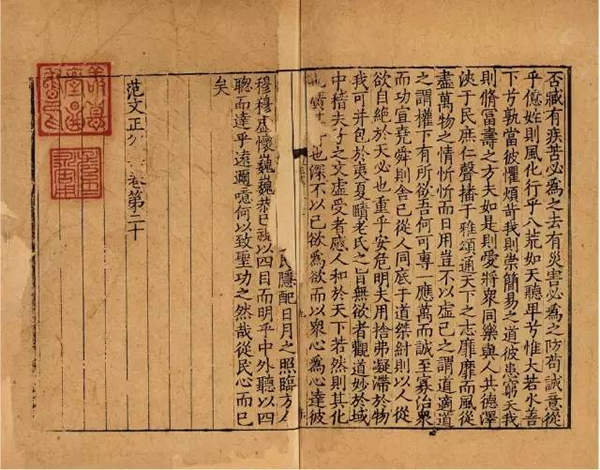 否臧有疾苦必為之去有災害必為之防苟誠意從
乎億姓則風化行乎八荒如天聽卑兮惟大若水善
下兮孰當彼懼煩苛我則崇簡易之道彼患窮夭我
則脩富壽之方夫如是則愛將衆同樂與人共德澤
浹于民庶仁聲播于雅頌通天下之志靡靡而風從
盡萬物之情忻忻而日用豈不以虛已之謂道適道
之謂權下有所欲吾何可專一應萬而誠至寡治衆
而功宣堯舜則舍已從人同底于道桀紂則以人從
欲自絕於天必也重乎安危明夫用捨弗凝滯於物
我可并包於夷夏賾老氏之旨無欲者觀道妙於域
中稽夫子之文虛受者感人和於天下若然則其化
也廣也深不以已欲為欲而以衆心為心達彼
民隱配日月之照臨方今
穆穆虛懷巍巍恭已視以四目而明乎中外聽以四
聰而達乎遠邇噫何以致聖功之然哉從民心而已
矣
范文正公卷第二十